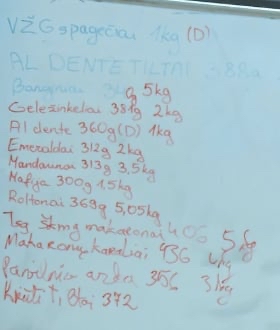 VŽG spagečiai 1kg (D)
AL DENTE TILTAI 388g
Banginiai 5kg
Geležinkeliai 381g 2kg
Al dente 360g (D) 1kg
Emeraldai 312g 2kg
Mandaunai 313g 3,5kg
Mafija 300g 1,5kg
Roltonai 369g 5,05kg
makaronai 406 5kg
Makaronų karaliai 436 4kg
356
372